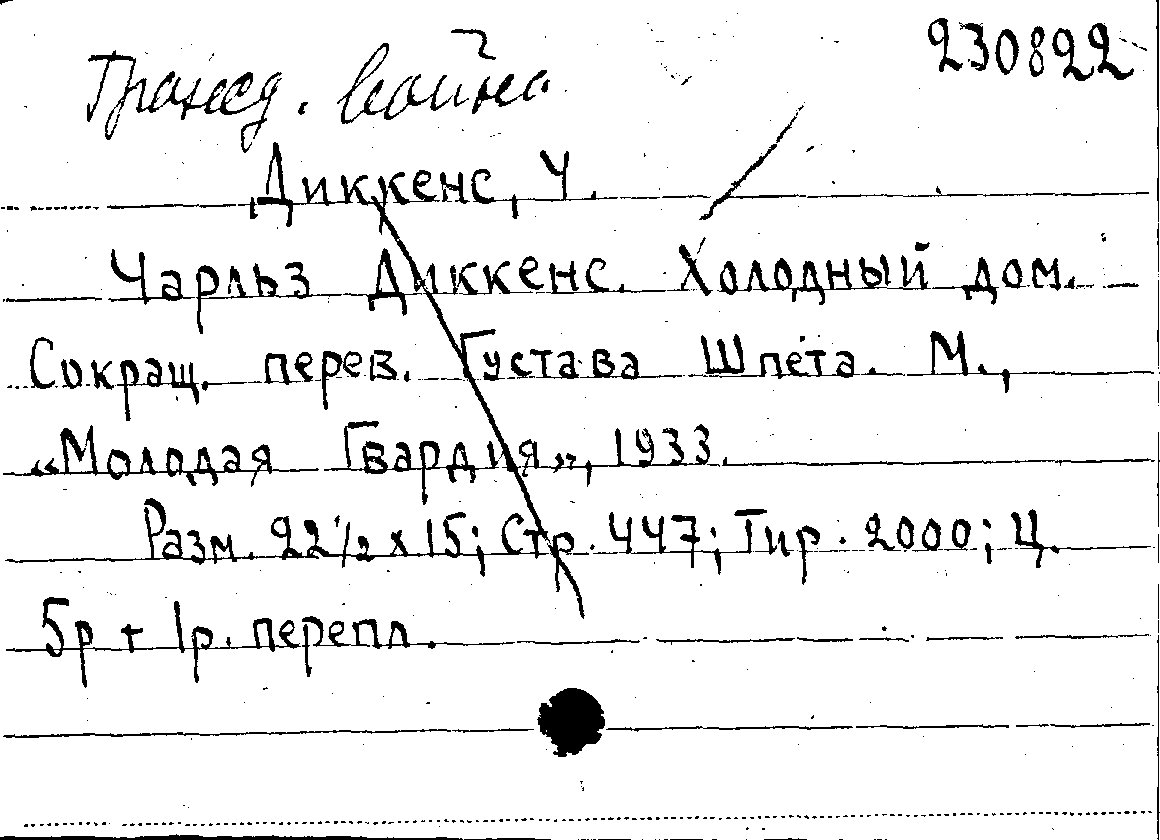 230822
Гражд. война
Диккенс, Ч.
Чарльз Диккенс. Холодный дом.
Сокращ. перев. Густава Шпета. М.,
«Молодая Гвардия», 1933.
Разм. 22½ x 15; Стр. 447; Тир. 2000; Ц.
5р + 1р. перепл.